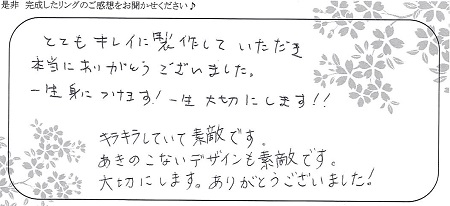 是非 完成したリングのご感想をお聞かせください♪
とてもキレイに製作していただき
本当にありがとうございました。
一生身につけます！一生大切にします！！
キラキラしていて素敵です。
あきのこないデザインも素敵です。
大切にします。ありがとうございました！